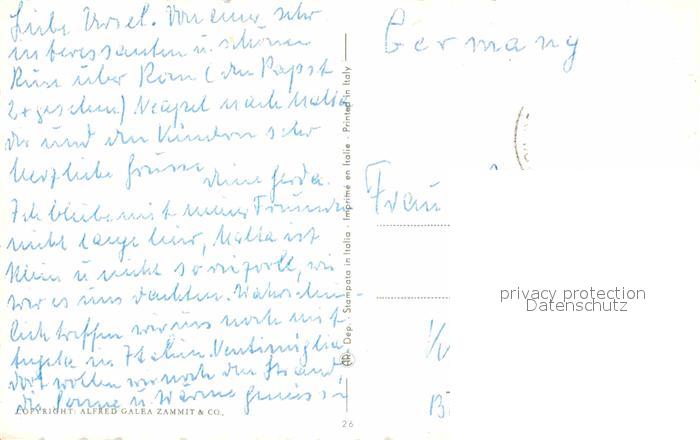 Liebe Ursel. Von einer sehr
interessanten u. schönen
Reise über Rom (den Papst
2x gesehen) Neapel nach Malta
dir und den Kindern sehr
herzliche Grüsse
deine Gerda.
Ich bleibe mit meiner Freundin
nicht lange hier, Malta ist
klein u nicht so reizvoll, wie
wir es uns dachten. Wahrschein-
lich treffen wir uns noch mit
in Italien. Ventimiglia
dort wollen wir noch den Strand
die Sonne u. Wärme geniessen
COPYRIGHT: ALFRED GALEA ZAMMIT & CO.
Dep. · Stampata in Italia · Imprimé en Italie · Printed in Italy
26
Germany
Frau
privacy protection
Datenschutz